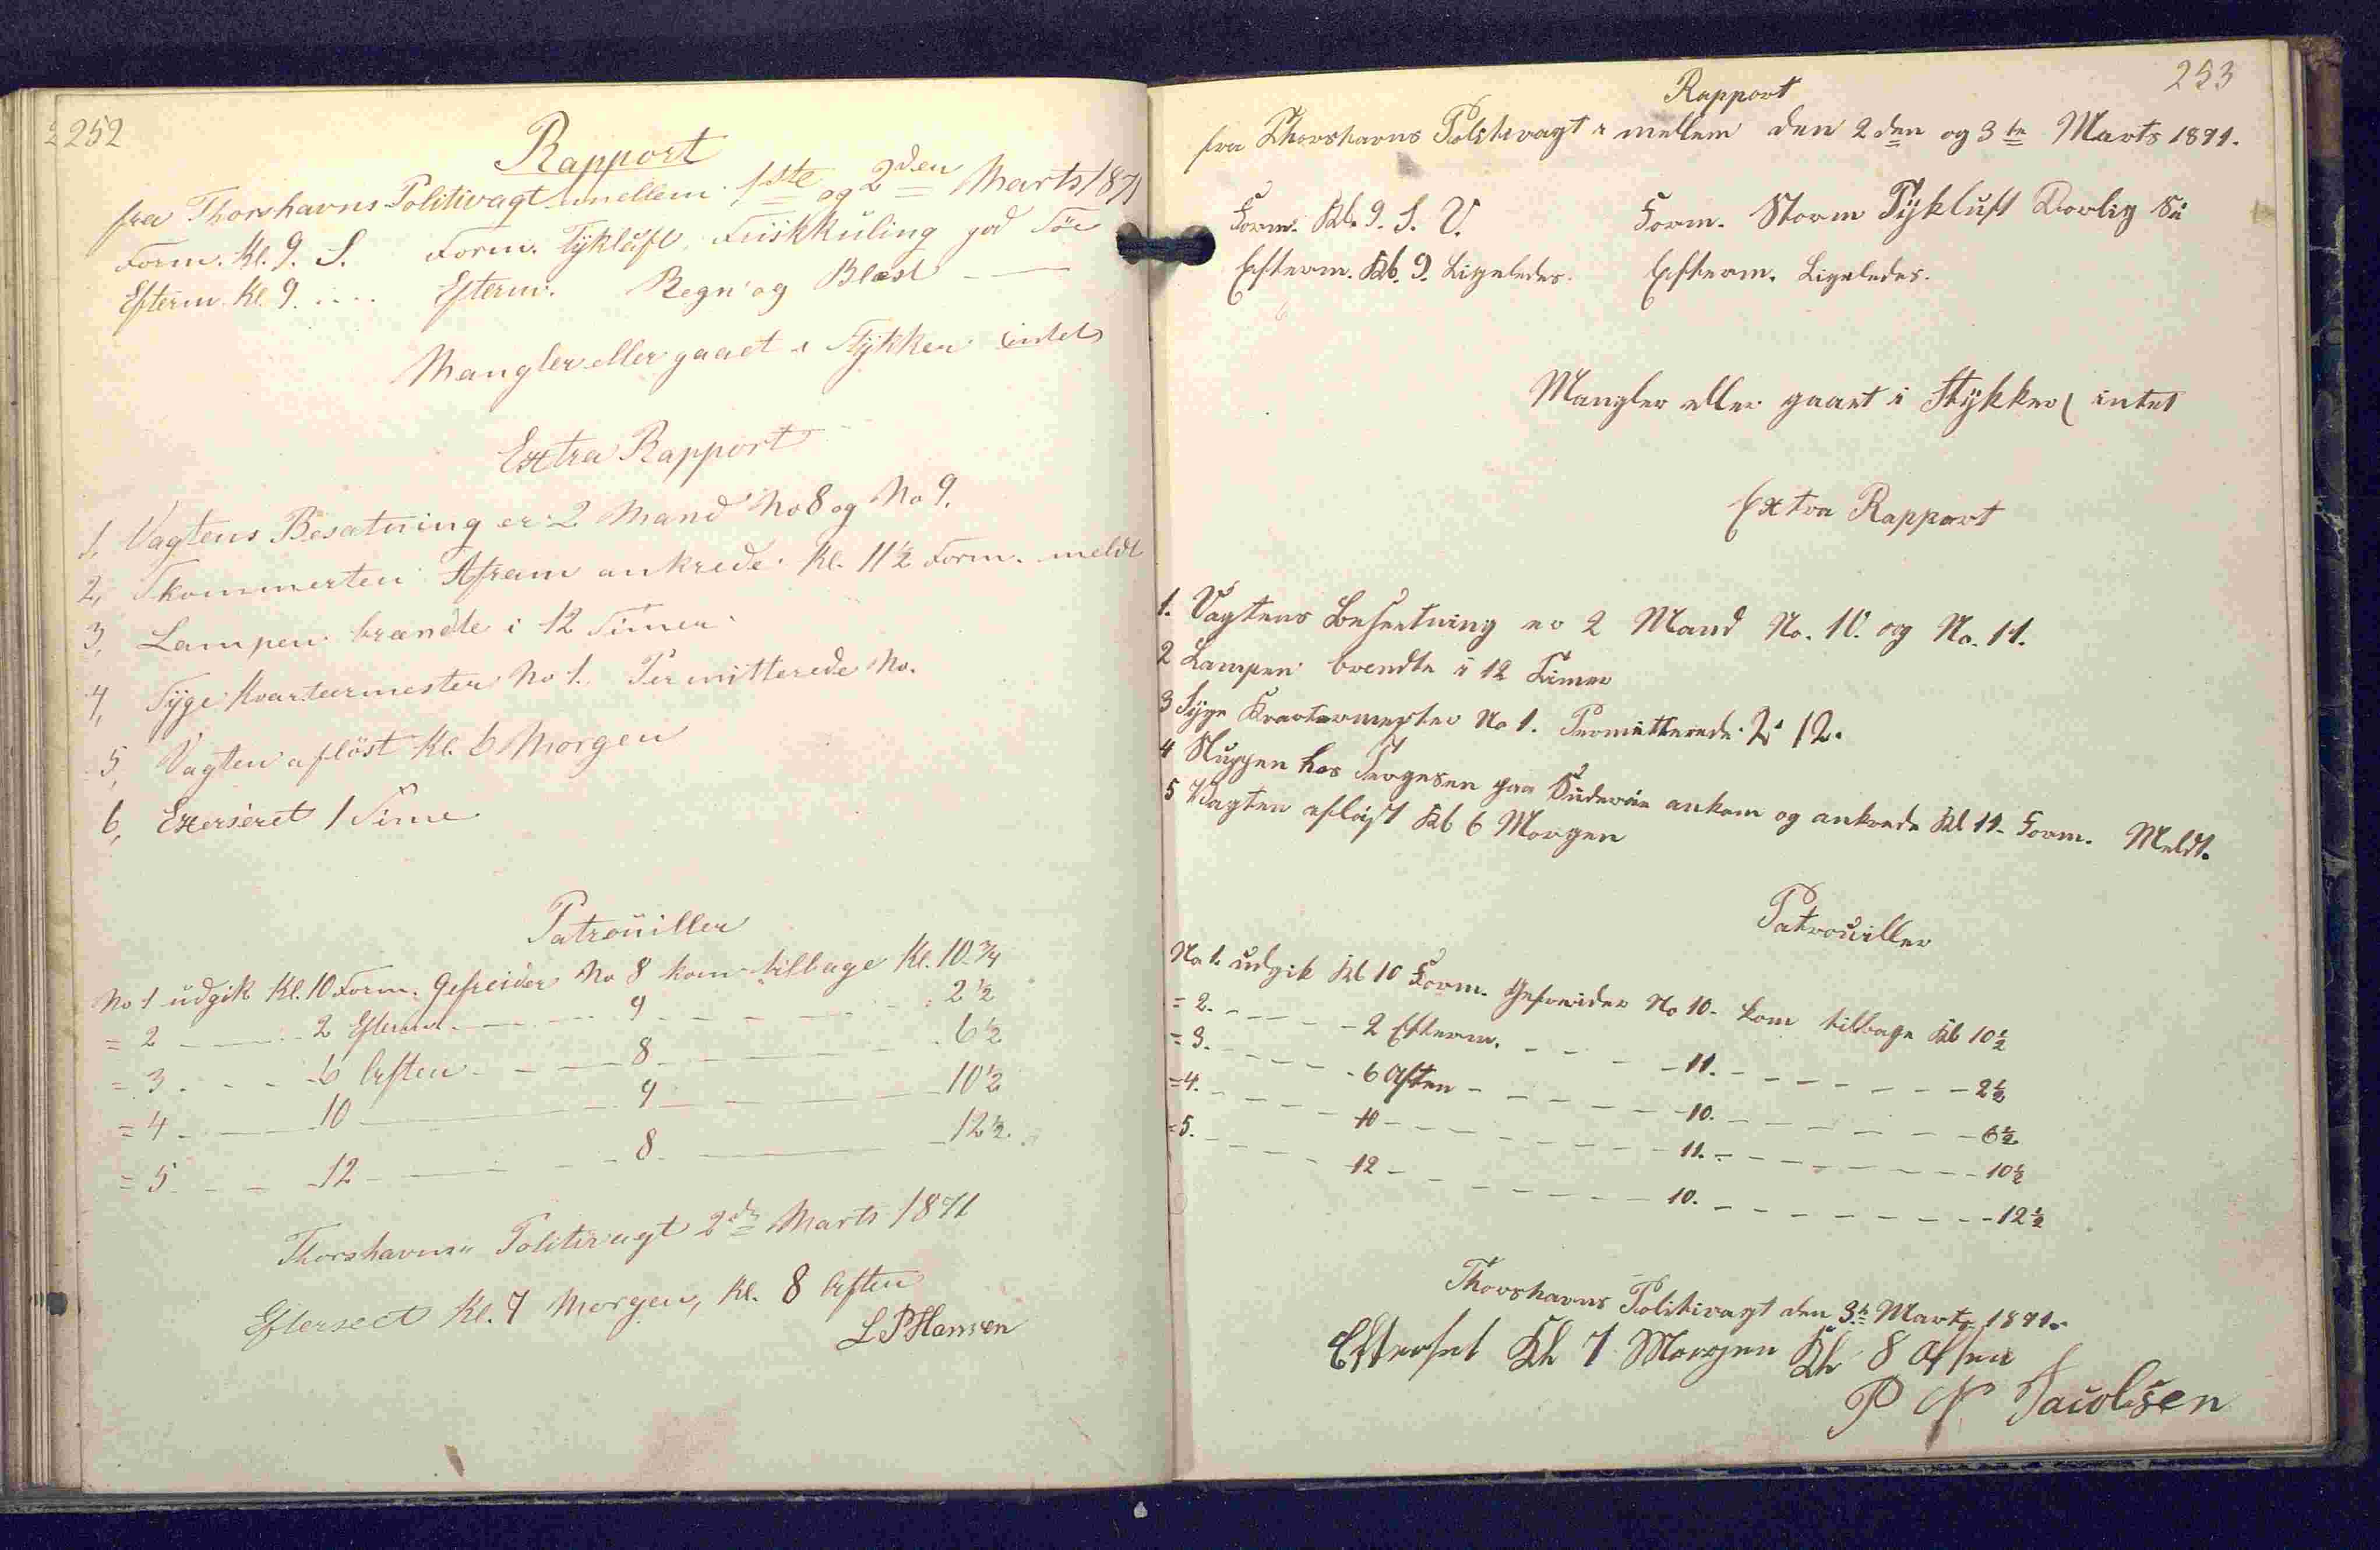 252
Rapport
fra Thorshavns Politivagt imellem 1ste og 2den Marts 1871
Form. Kl. 9. S. Form. Tÿkluft, Friskkuling god Söe
Efterm. Kl. 9. .... Efterm. Regn og Blæst —
Mangler eller gaaet i Stÿkker intet
Extra Rapport
1, Vagtens Besætning er 2 Mand No 8 og No 9.
2, Skonnerten Afram ankrede Kl. 11½ Form. meldt
3, Lampen brændte i 12 Timer.
4, Sÿge Kvarteermester No 1. Permitterede No.
5, Vagten aflöst Kl. 6 Morgen
6, Exerseret 1 Time
Patrouiller
No 1 udgik Kl. 10 Form. Gefreider No 8 kom tilbage Kl. 10¾
= 2 — — 2 Efterm. — — 9 — — 2½
= 3 — — 6 Aften — — 8 — — 6½
= 4 — — 10 — — 9 — — 10½
= 5 — — 12 — — 8 — — 12½.
Thorshavns Politivagt 2den Marts 1871
Efterseet Kl. 7 Morgen, Kl. 8 Aften
L P Hansen
253
Rapport
fra Thorshavns Politivagt i mellem den 2den og 3te Marts 1871.
Form. Kl. 9. S. V. Form. Storm Tÿkluft Dorlig Sö
Efterm. Kl. 9. Ligeledes. Efterm. Ligeledes.
Mangler eller gaaet i Stÿkker intet
Extra Rapport
1. Vagtens Besetning er 2 Mand No. 10. og No. 11.
2 Lampen brendte i 12 Timer
3 Sÿge Kvartermester No 1. Permitterede 2 & 12.
4 Sluppen hos Jørgesen paa Suderöe ankom og ankrede Kl 11. Form. Meldt.
5 Vagten afløst Kl 6 Morgen
Patrouiller
No 1. udgik Kl 10 Form. Gefreider No 10. kom tilbage Kl 10½
= 2. — — 2 Efterm. — — 11. — — 2½
= 3. — — 6 Aften — — 10. — — 6½
= 4. — — 10 — — 11. — — 10½
= 5. — — 12 — — 10. — — 12½
Thorshavns Politivagt den 3te Marts 1871.
Efterset Kl 7 Morgen Kl 8 Aften
P N Jacobsen